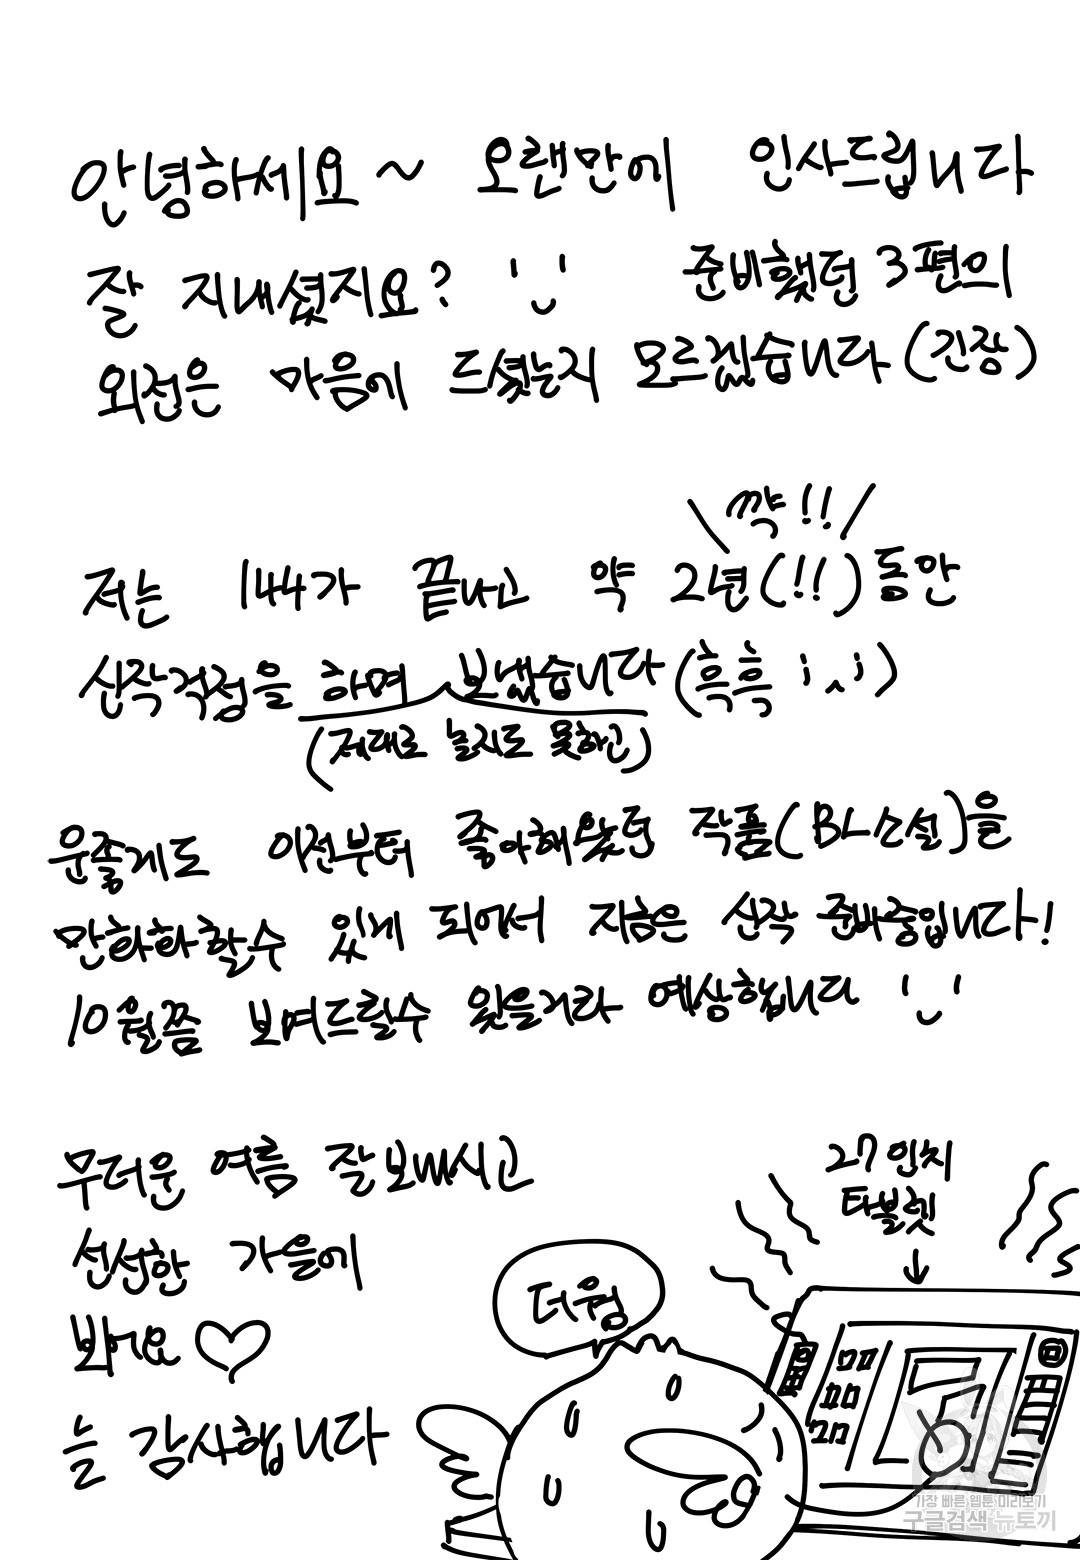 안녕하세요~ 오랜만에 인사드립니다
잘 지내셨지요? 준비했던 3편의
외전은 마음에 드셨는지 모르겠습니다 (긴장)
꺅!!
저는 144가 끝나고 약 2년(!!)동안
신작걱정을 하며 보냈습니다 (흑흑 ;ㅅ;)
(제대로 놀지도 못하고)
운좋게도 이전부터 좋아해왔던 작품(BL소설)을
만화화할수 있게 되어서 지금은 신작 준비중입니다!
10월쯤 보여드릴수 있을거라 예상합니다
무더운 여름 잘 보내시고
선선한 가을에
봐어요♡
늘 감사합니다
27인치
타블렛
더웡
가장 빠른 웹툰 미리보기
구글검색 뉴토끼